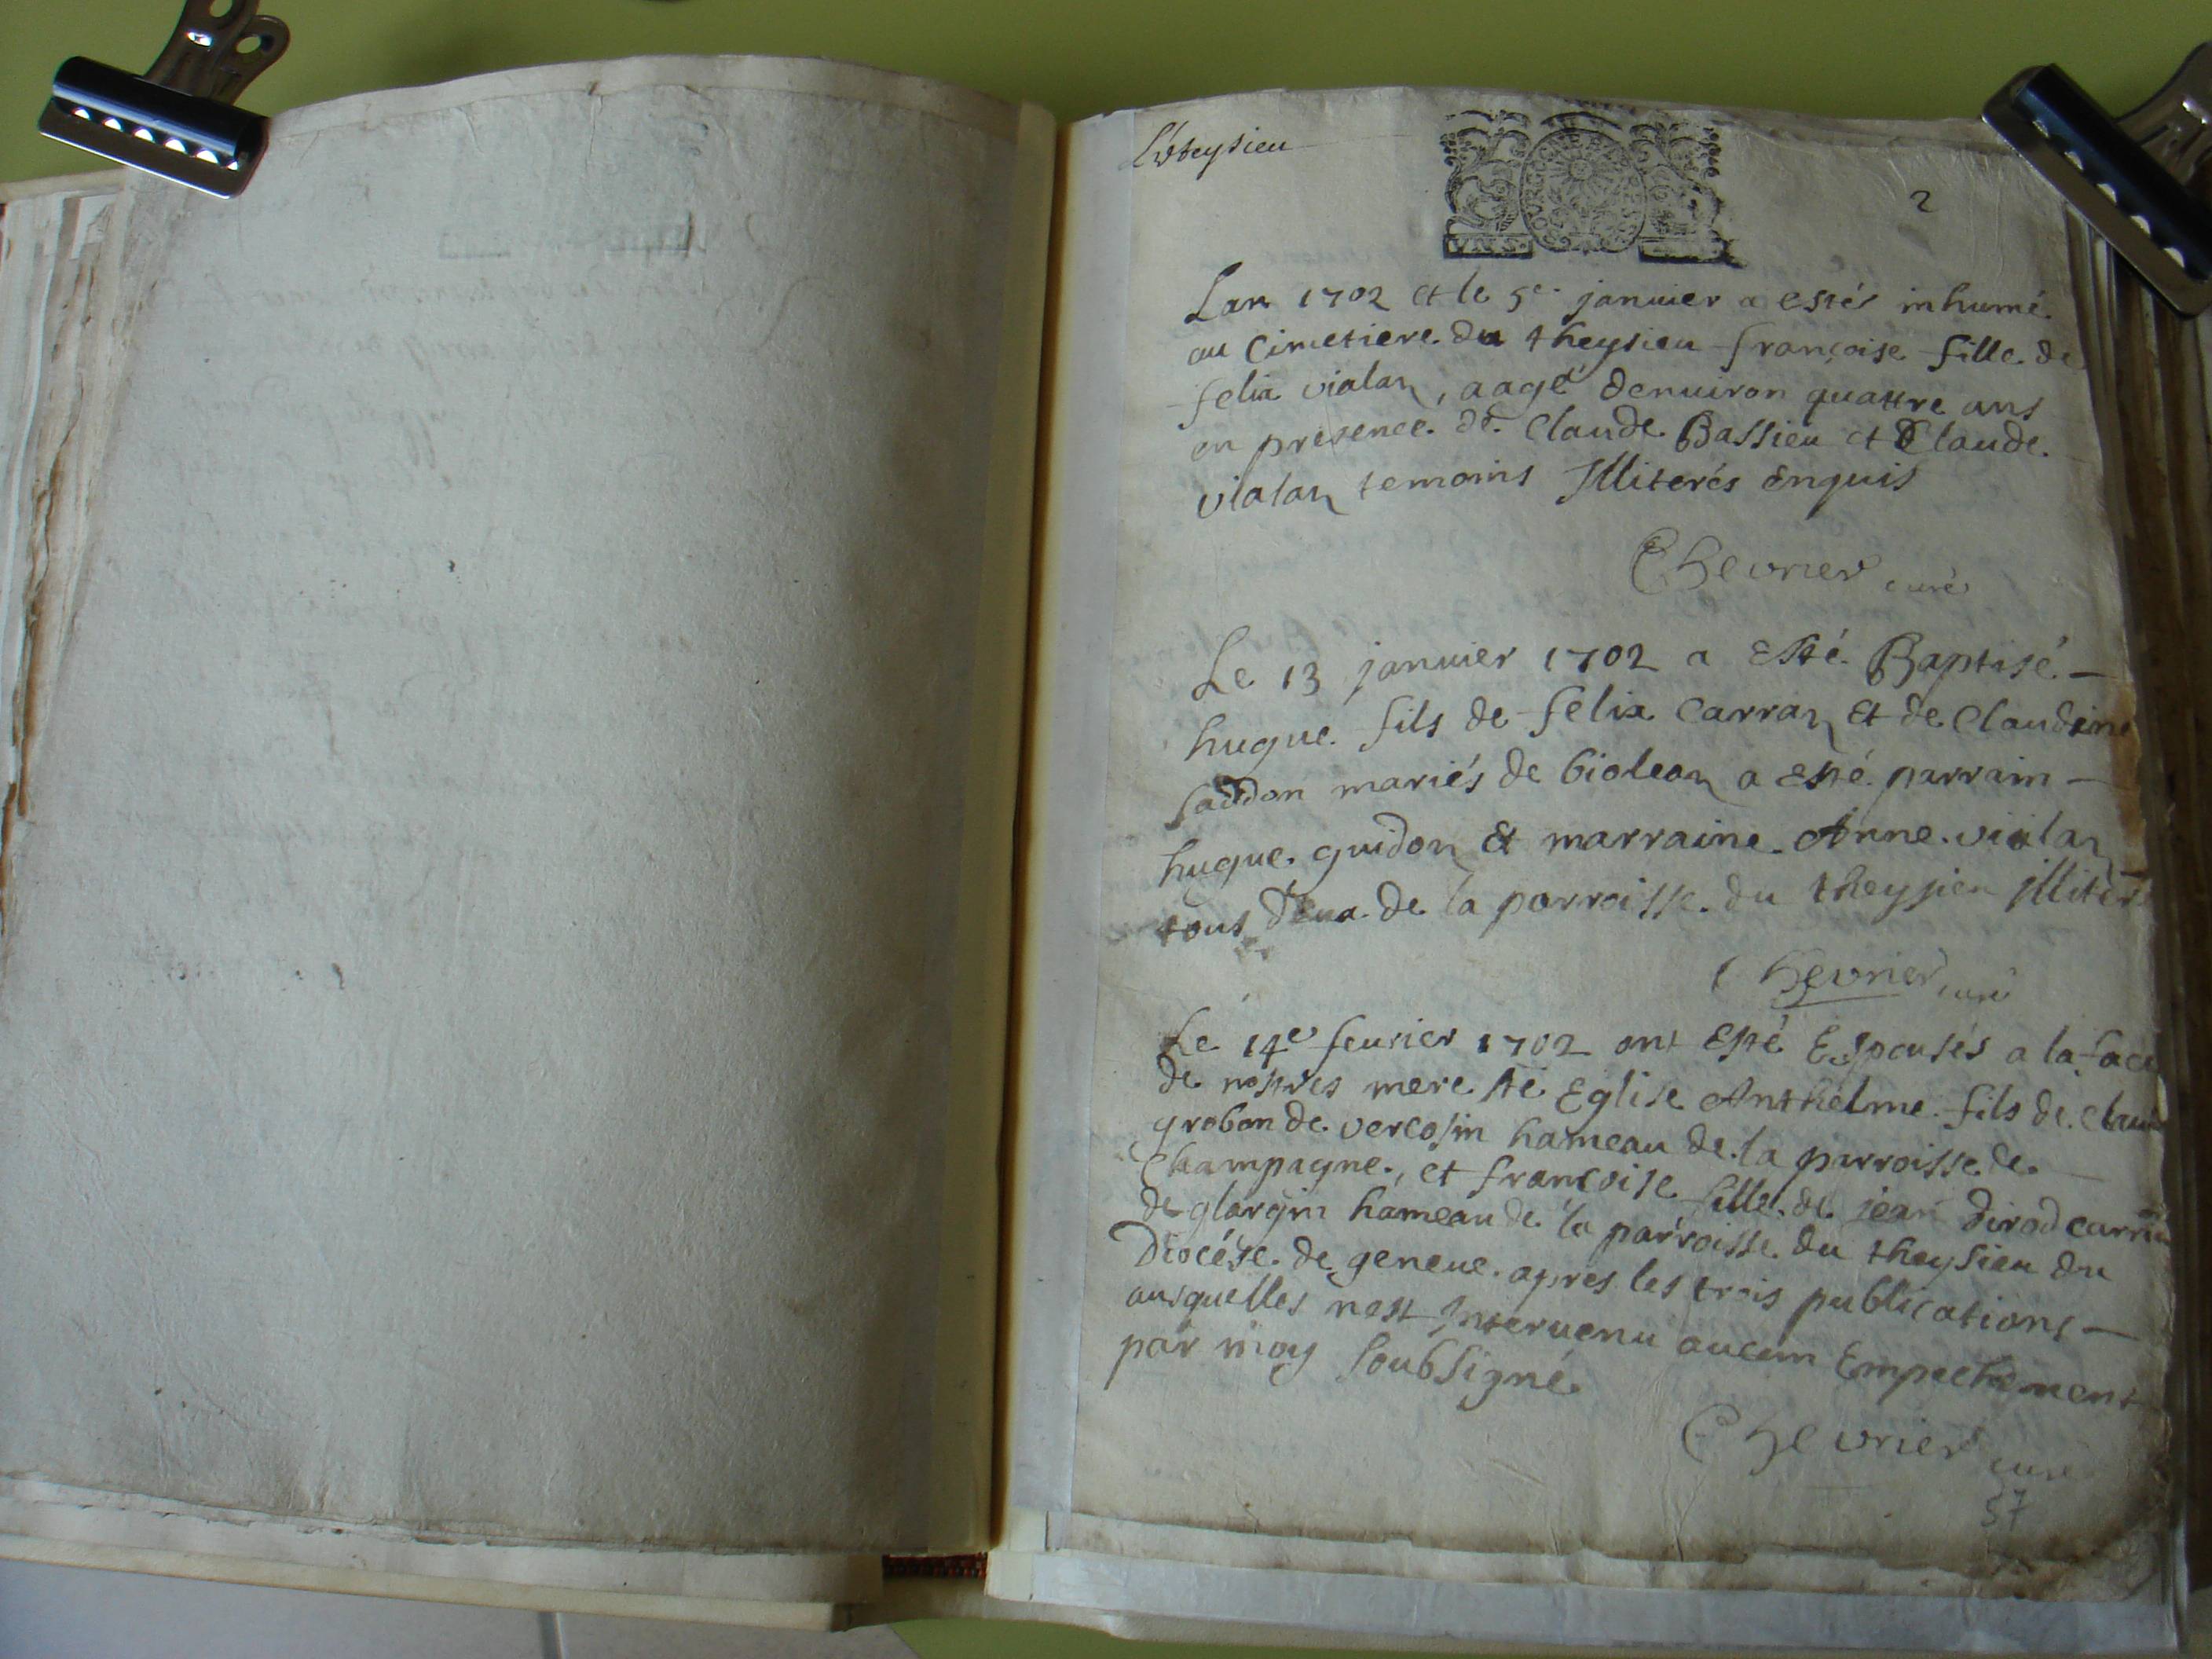 Lutheysieu
2
Lan 1702 et le 5e. janvier a estés inhumé.
au Cimetiere. du theysieu françoise fille. de
felix vialan, aagé denuiron quattre ans
en presence. de. Claude. Bassieu et Claude.
vialan temoins Illiterés enquis
Chevrier curé
Le 13 janvier 1702 a Esté. Baptisé. —
hugue. fils de felix Carran Et de Claudine
mariés de biolean a esté. parrain —
hugue. guidon & marraine. Anne. vialan
tous deux. de la parroisse. du theysieu illiter
Chevrier, curé
Le 14e feurier 1702 ont Esté Espousés a la face
de nostres mere ste Eglise Anthelme. fils de. Claude
grobon de. vercosin hameau de. la parroisse. de.
Champagne., et francoise fille. de. jean dirod carrier
de glargin hameau de. la parroisse. du theysieu du
Diocése. de geneue. apres les trois publications —
ausquelles nest Interuenu aucun Empechement
par moy soubsigné.
Chevrier curé
57